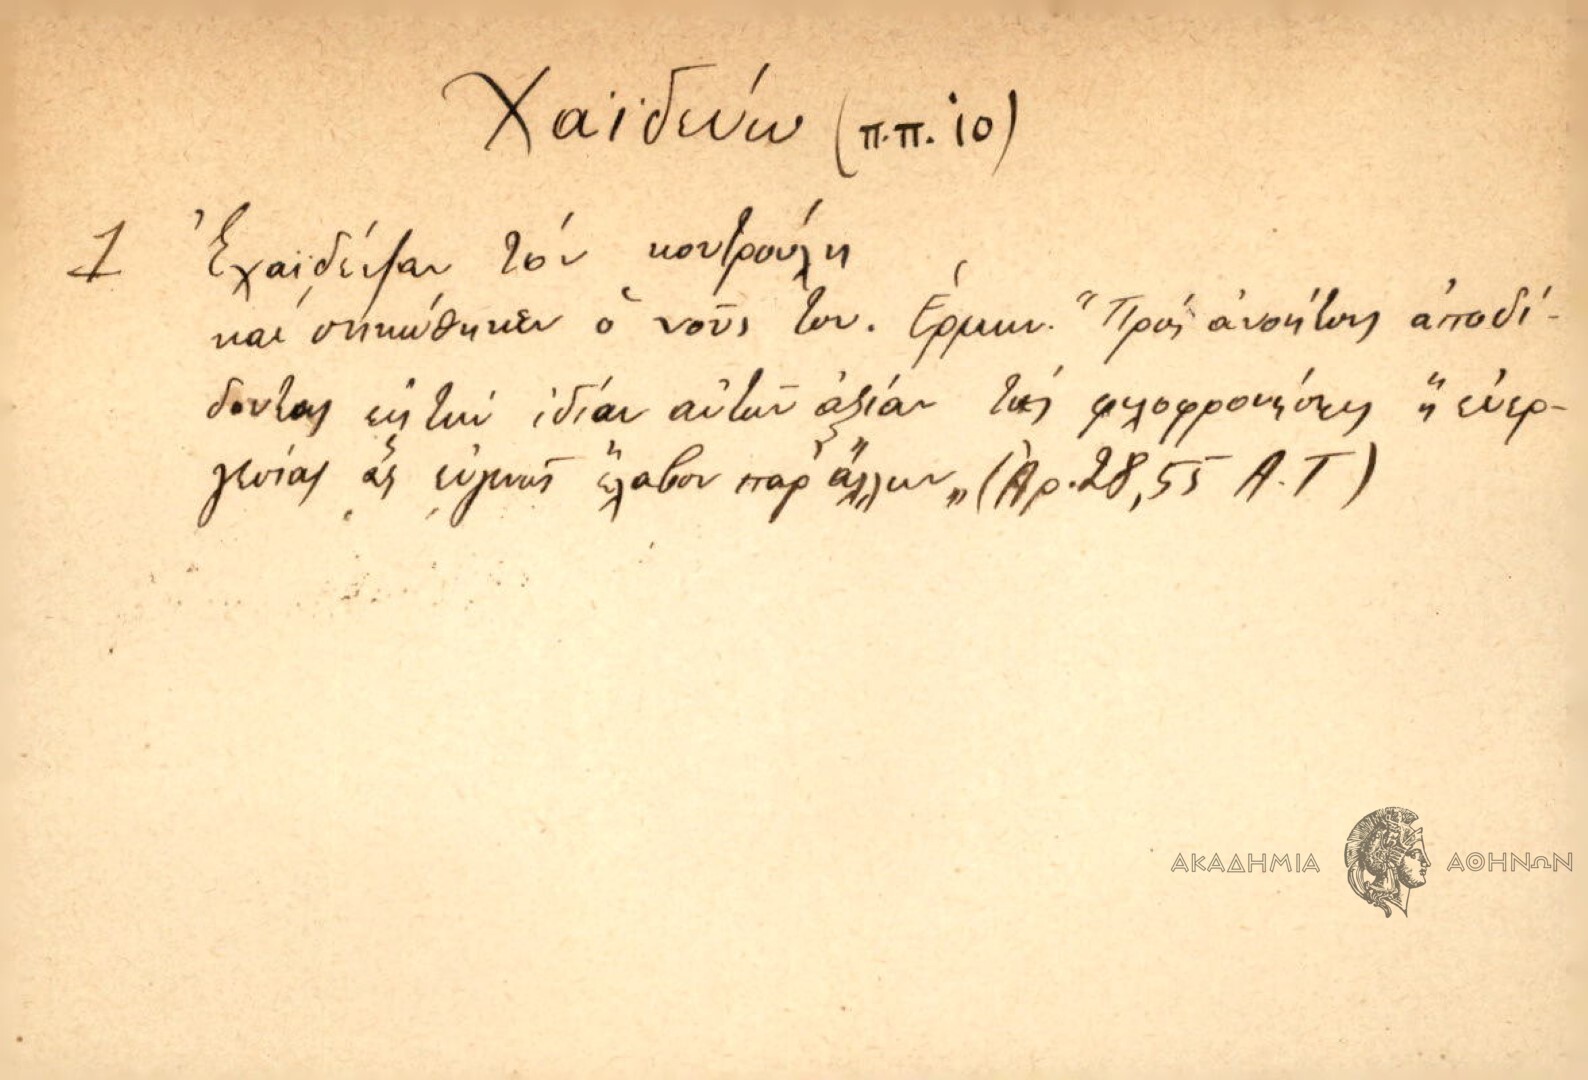 Χαϊδεύω (π.π. ιο)
1 Ἐχαϊδέψαν τόν κουτρούλη
καί σηκώθηκεν ὁ νοῦς του. Ἑρμην. "Πρός ἀνοήτους ἀποδί-
δοντας εἰς τήν ἰδίαν αὑτῶν ἀξίαν τάς φιλοφρονήσεις ἤ εὐερ-
γεσίας ἅς εὐγενῶς ἔλαβον παρ' ἄλλων„ (Ἀρ. 28,55 Α.Τ)
ΑΚΑΔΗΜΙΑ ΑΘΗΝΩΝ